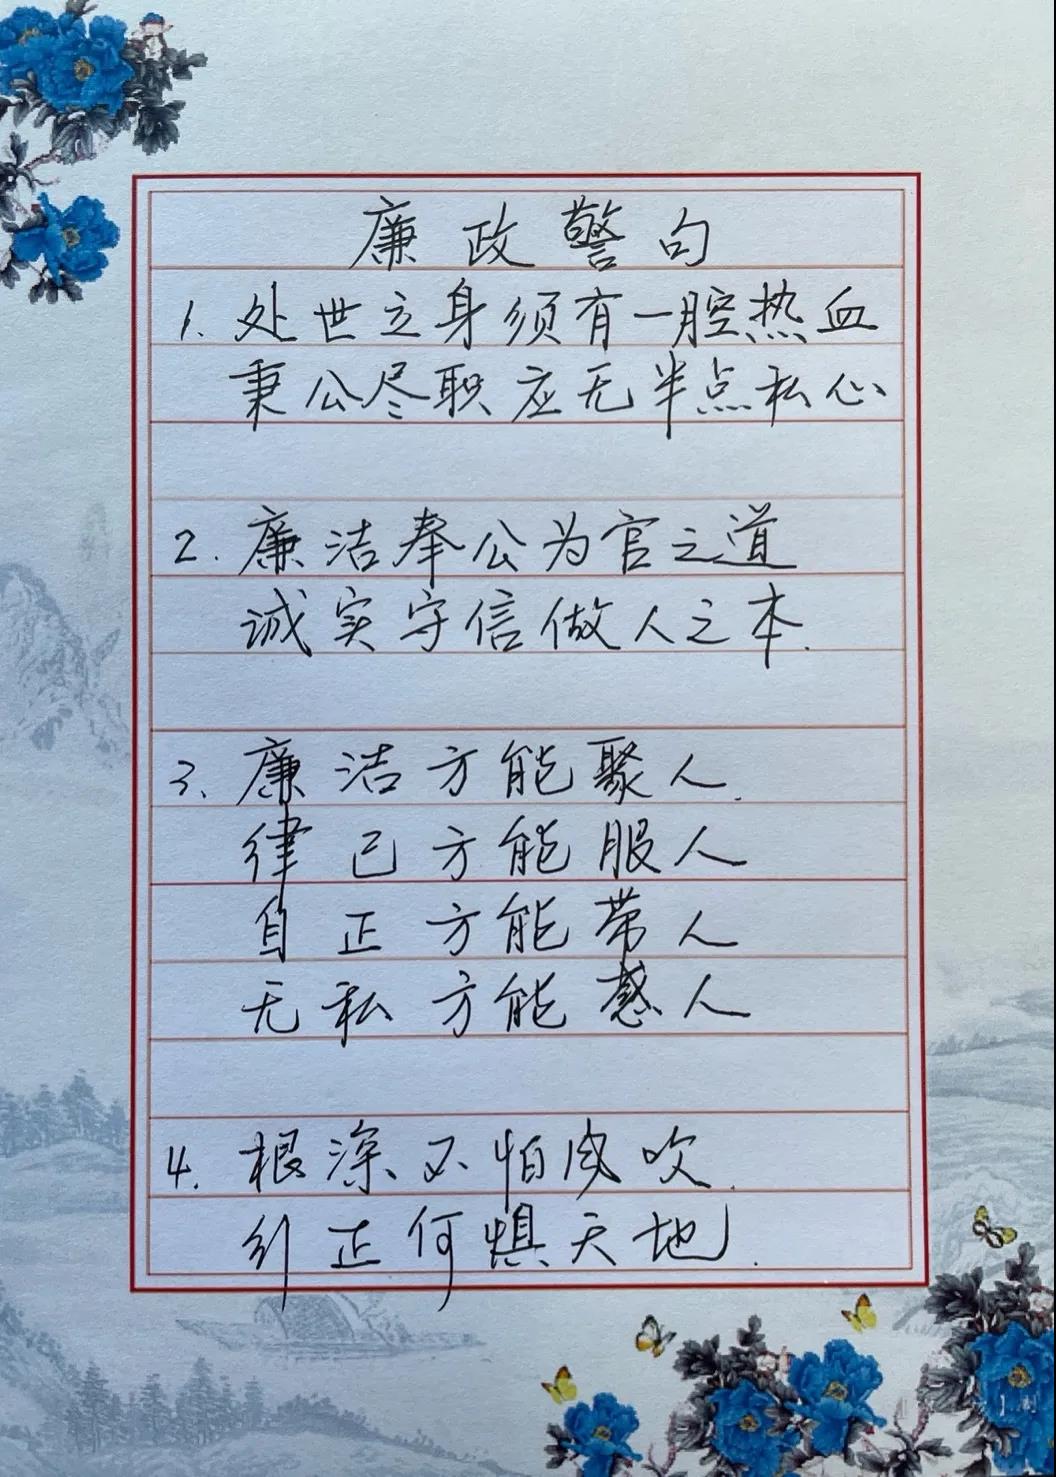 廉政警句
1. 处世之身须有一腔热血
秉公尽职应无半点私心
2. 廉洁奉公为官之道
诚实守信做人之本.
3、廉洁方能聚人.
律己方能服人
自正方能带人
无私方能感人
4. 根深不怕风吹.
正何惧天地.